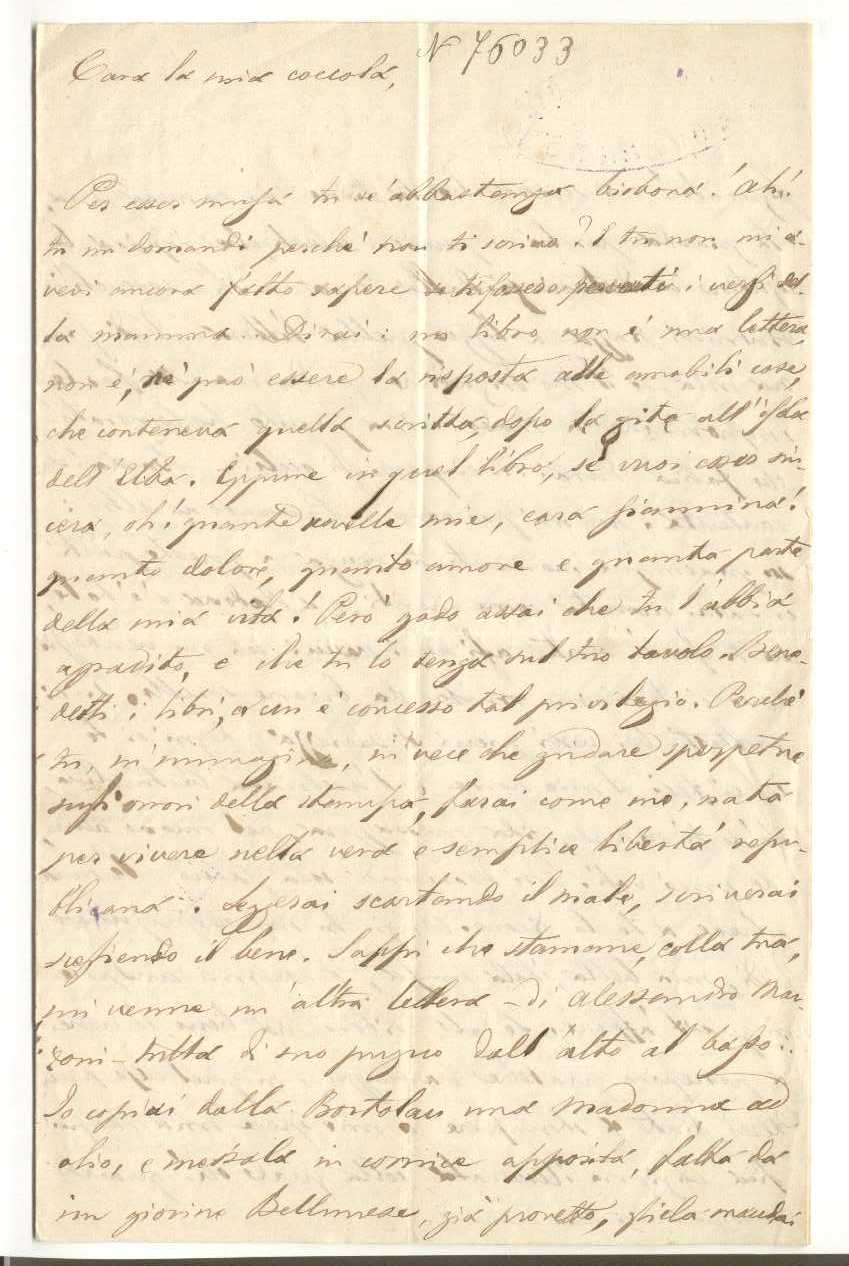 N 76033
Cara la mia coccola,
Per esser musa tu se' abbastanza birbona! Ah!
tu mi domandi perchè non ti scrivo? E tu non mi a-
vevi ancora fatto sapere se ti fossero pervenuti i versi del-
la mamma. Dirai: un libro non è una lettera,
non è, nè può essere la risposta alle amabili cose,
che conteneva quella scritta, dopo la gita all'isola
dell'Elba. Eppure in quel libro, se vuoi esser sin-
cera, oh! quante novelle mie, cara Giannina!
quanto dolore, quanto amore e quanta parte
della mia vita! Però godo assai che tu l'abbia
agradito, e che tu lo tenga sul tuo tavolo. Bene-
detti i libri, a cui è concesso tal privilegio. Perchè
tu, m'immagino, in vece che gridare
sugli orrori della stampa, farai come me, nata
per vivere nella vera e semplice libertà repu-
blicana. Leggerai scartando il male, scriverai
scegliendo il bene. Sappi che stamane, colla tua,
mi venne un'altra lettera - di Alessandro Man-
zoni - tutta di suo pugno dall'alto al basso.
Io copiai dalla Bortolan una Madonna ad
olio, e messala in cornice apposita, fatta da
un giovine Bellunese, già provetto, gliela mandai